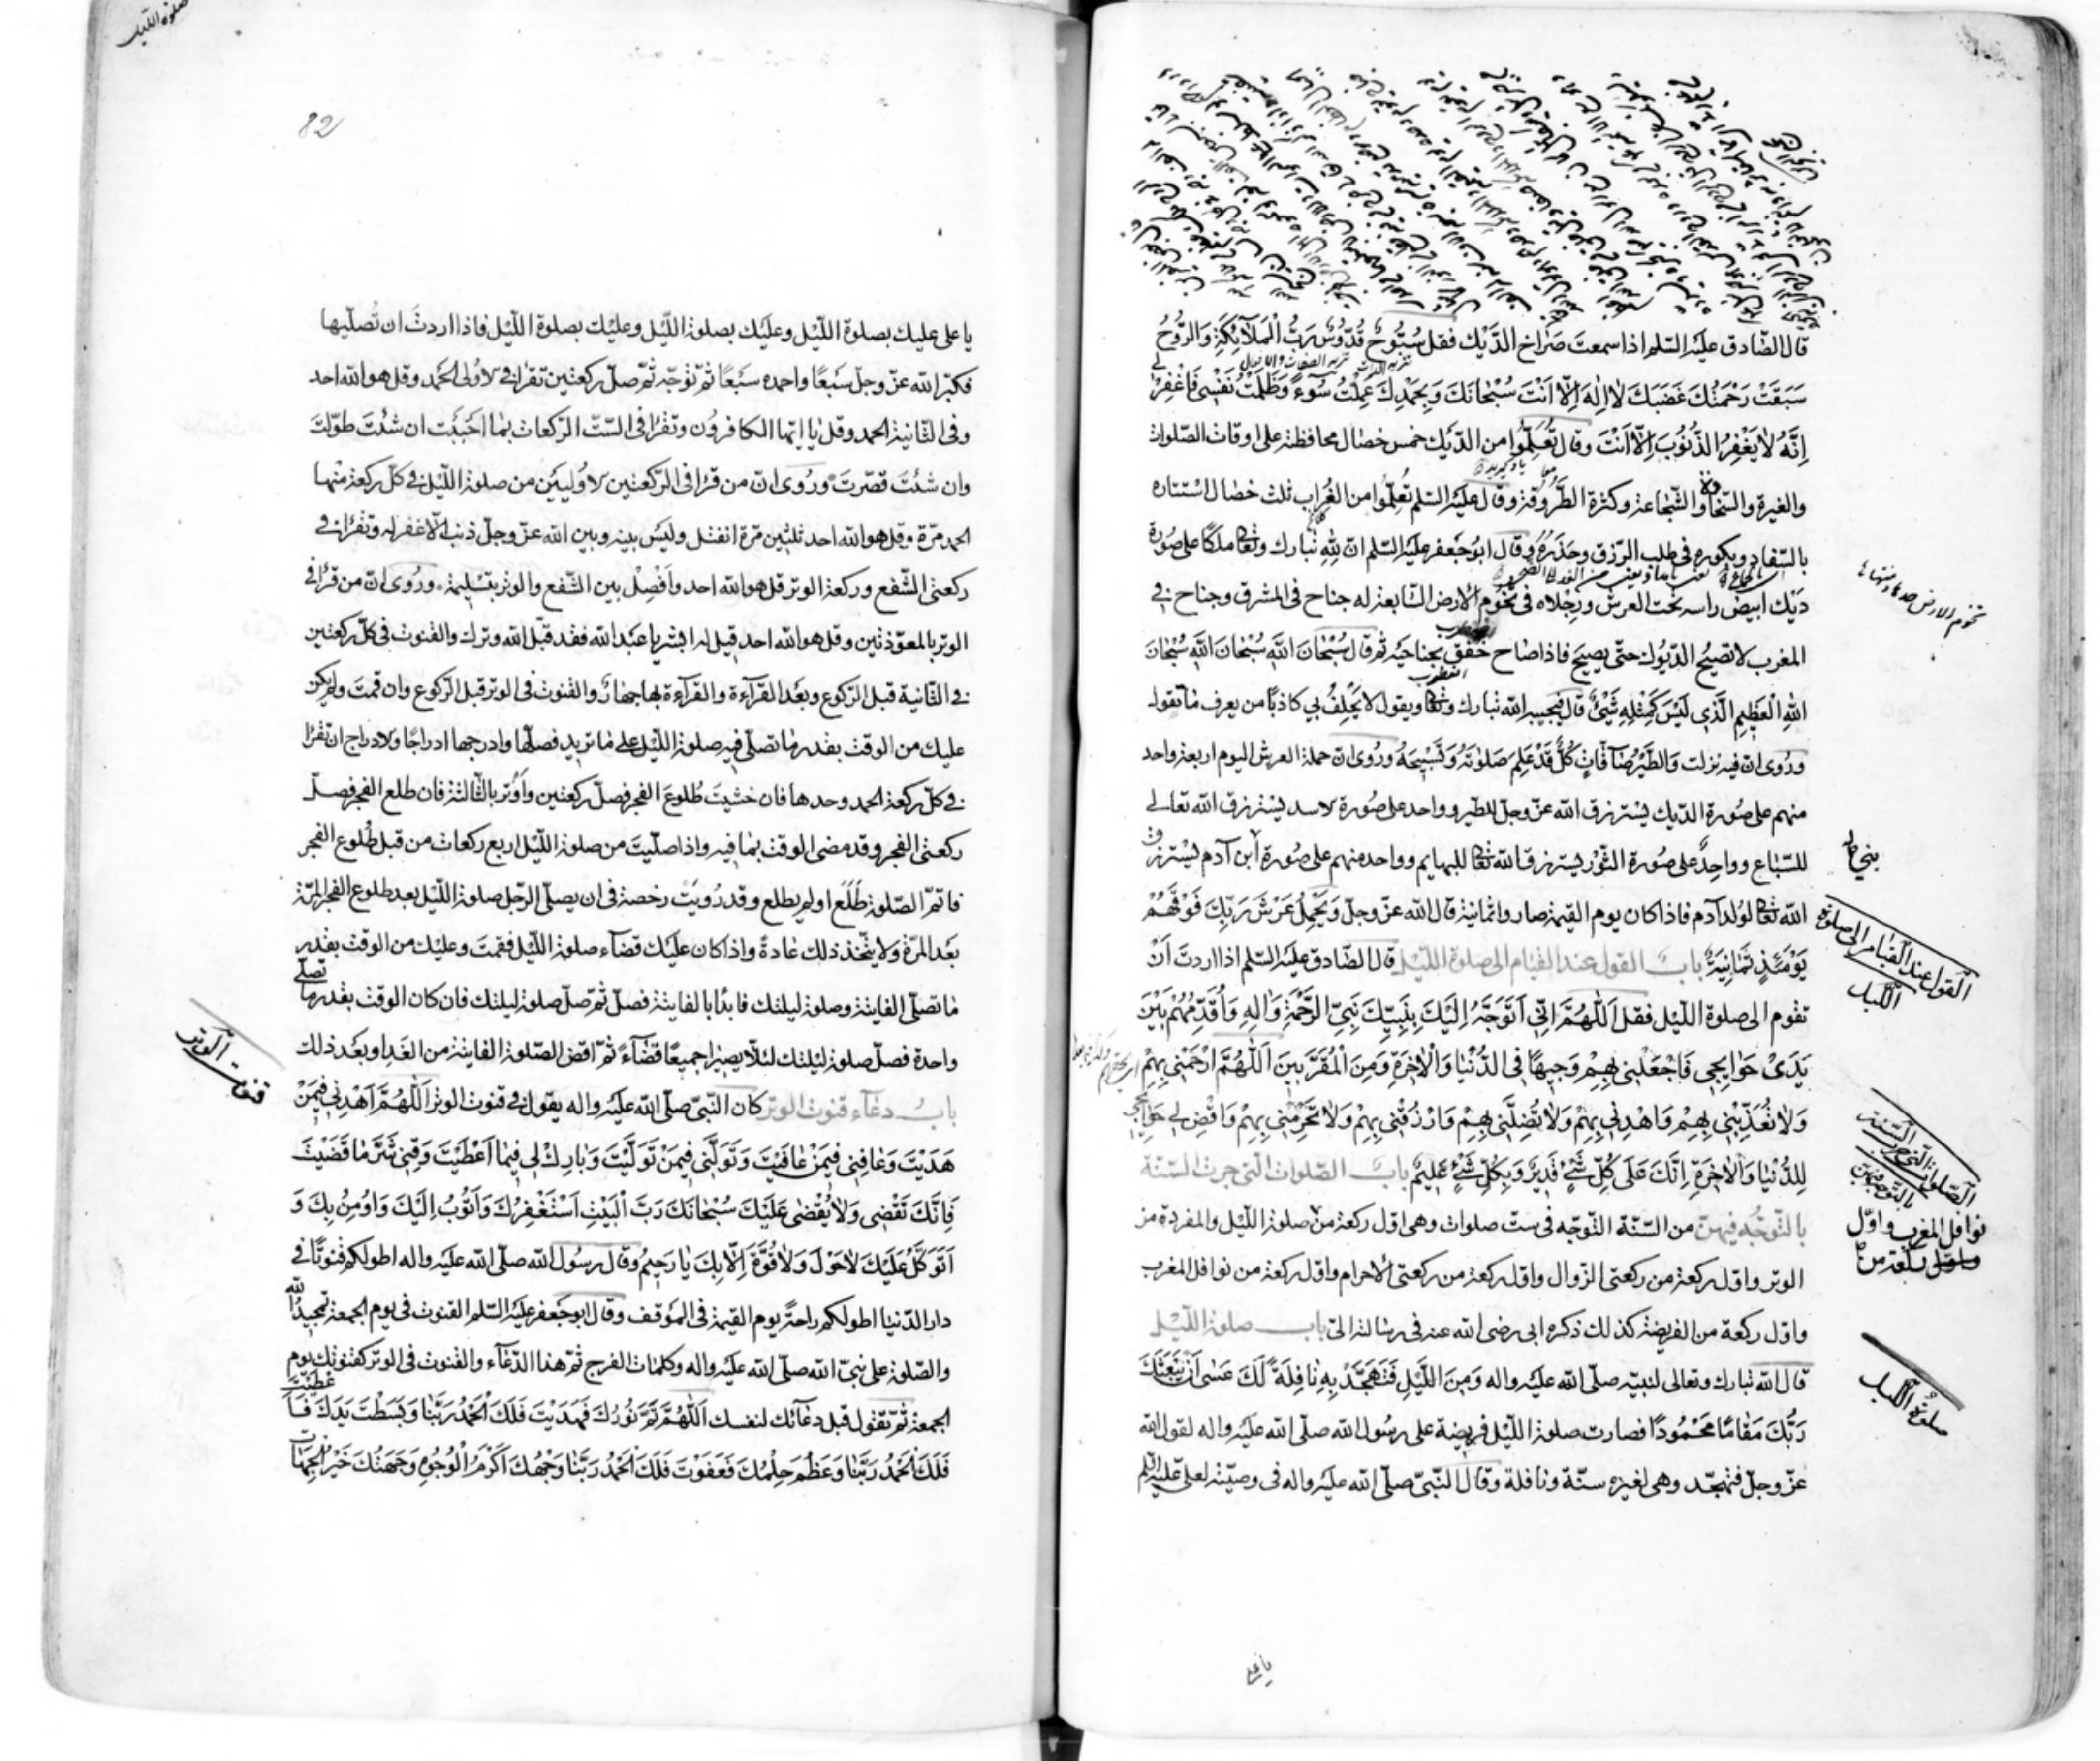 قال الصّادق عليه السّلم اذا سمعت صراخ الدّيك فقل سُبّوحٌ قُدّوسٌ رَبُّ الْمَلآئِكَةِ وَالرُّوحُ
سَبَقَتْ رَحْمَتُكَ غَضَبَكَ لا اِلهَ اِلّا اَنْتَ سُبْحانَكَ وَبِحَمْدِكَ عَمِلْتُ سُوءً وَظَلَمْتُ نَفْسِي فَاغْفِرْ لِي
اِنَّهُ لا يَغْفِرُ الذُّنُوبَ اِلّا اَنْتَ وقال تعلّموا من الدّيك خمس خصال محافظته على اوقات الصّلوات
والغيرة والسّخاء والشّجاعة وكثرة الطّروقة وقال عليه السّلم تعلّموا من الغُراب ثلث خصال استتاره
بالسّفاد وبكوره في طلب الرّزق وحذره وقال ابوجعفر عليه السّلم انّ لِلّهِ تبارك وتعالى ملكًا على صُورة
ديك ابيض راسه تحت العرش ورجلاه في تخوم الأرض السّابعة له جناح في المشرق وجناح في
المغرب لا تصيح الدّيوك حتّى يصيح فاذا صاح خفق بجناحيه ثم قال سُبْحانَ اللّهِ سُبْحانَ اللّهِ سُبْحانَ
اللهِ الْعَظِيمِ الَّذِي لَيْسَ كَمِثْلِهِ شَيْئٌ قال فيجيبه الله تبارك وتعالى ويقول لا يحلف بي كاذبًا من يعرف ما تقول
ورُوى انّ فيه نزلت وَالطَّيْرُ صَآفّاتٍ كُلٌّ قَدْ عَلِمَ صَلوتَهُ وَتَسْبِيحَهُ ورُوى انّ حملة العرش اليوم اربعة واحد
منهم على صُورة الدّيك يسترزق الله عزّ وجلّ للطّير وواحد على صُورة لاسد يسترزق الله تعالى
للسّباع وواحدٌ على صُورة الثّور يسترزق الله تعالى للبهايم وواحد منهم على صُورة ابن آدم يسترزق
الله تعالى لولد آدم فاذا كان يوم القيمة صاروا ثمانية قال الله عزّ وجلّ وَيَحْمِلُ عَرْشَ رَبِّكَ فَوْقَهُمْ
يَوْمَئِذٍ ثَمانِيَةٌ باب القول عند القيام الى صلوة اللّيل قال الصّادق عليه السّلم اذا اردتَ اَنْ
تقوم الى صلوة اللّيل فقل اَللّهُمَّ اِنّي اَتَوَجَّهُ اِلَيْكَ بِنَبِيِّكَ نَبِيِّ الرَّحْمَةِ وَالِهِ وَاُقَدِّمُهُمْ بَيْنَ
يَدَيْ حَوايِجي فَاجْعَلْني بِهِمْ وَجيهًا فِي الدُّنْيا وَالْاخِرَةِ وَمِنَ الْمُقَرَّبينَ اَللّهُمَّ ارْحَمْني بِهِمْ
وَلا تُعَذِّبْني بِهِمْ وَاهْدِني بِهِمْ وَلا تُضِلَّني بِهِمْ وَارْزُقْني بِهِمْ وَلا تَحْرِمْني بِهِمْ وَاقْضِ لي حَوايِجي
لِلدُّنْيا وَالْاخِرَةِ اِنَّكَ عَلى كُلِّ شَيْءٍ قَديرٌ وَبِكُلِّ شَيْءٍ عَليمٌ باب الصّلوات الّتي جرت السّنّة
بالتّوجّه فيهنّ من السّنّة التّوجّه في ستّ صلوات وهي اوّل ركعة من صلوة اللّيل والمفردة من
الوتر واوّل ركعة من ركعتي الزّوال واوّل ركعة من ركعتي الاحرام واوّل ركعة من نوافل المغرب
واوّل ركعة من الفريضة كذلك ذكره ابي رضى الله عنه في رسالته الىّ باب صلوة اللّيل
قال الله تبارك وتعالى لنبيّه صلّى الله عليه واله وَمِنَ اللَّيْلِ فَتَهَجَّدْ بِهِ نافِلَةً لَكَ عَسى اَنْ يَبْعَثَكَ
رَبُّكَ مَقامًا مَحْمُودًا فصارت صلوة اللّيل فريضة على رسُول الله صلّى الله عليه واله لقول الله
عزّ وجلّ فتهجّد وهي لغيره سنّة ونافلة وقال النّبيّ صلّى الله عليه واله في وصيّته لعلي عليه السّلم
تخوم الارض حدها ومنتهاها
بني
القول عند القيام الى صلوة
اللّيل
الصّلوات الّتي جرت السّنّة
بالتّوجّه فيهنّ
نوافل المغرب واوّل
صلوة اللّيل
يا علي
صلوة اللّيل
82
يا علي عليك بصلوة اللّيل وعليك بصلوة اللّيل وعليك بصلوة اللّيل فاذا اردتَ ان تُصلّيها
فكبّر الله عزّ وجلّ سَبعًا واحمده سَبعًا ثمّ توجّه ثمّ صلّ ركعتين تقرأ في لاولى الحَمد وقل هو الله احد
وفي الثّانية الحمد وقل يا ايّها الكافرون وتقرأ في السّتّ الرّكعات بما احببت ان شئت طوّلت
وان شئتَ قصّرت ورُوى انّ من قرأ في الرّكعتين لاوليين من صلوة اللّيل في كلّ ركعة منها
الحمد مرّة وقل هو الله احد ثلثين مرّة انفتل وليس بينه وبين الله عزّ وجلّ ذنب الّا غفر له وتقرأ في
ركعتي الشّفع وركعة الوتر قل هو الله احد وافصِل بين الشّفع والوتر بتسليمة ورُوى انّ من قرأ في
الوتر بالمعوّذتين وقل هو الله احد قيل له ابشر يا عبد الله فقد قبّل الله وترك والقنوت في كلّ ركعتين
في الثّانية قبل الرّكوع وبعد القرآءة والقرآءة بها جهار والقنوت في الوتر قبل الرّكوع وان قمتَ ولم يكن
عليك من الوقت بقدر ما تصلّي فيه صلوة اللّيل على ما تريد فصلّها وادرجها ادراجًا ولادراج ان تقرأ
في كلّ ركعة الحمد وحدها فان خشيتَ طُلوع الفجر فصلّ ركعتين وأَوْتر بالثّالثة فان طلع الفجر فصلّ
ركعتي الفجر وقد مضى الوقت بما فيه واذا صلّيتَ من صلوة اللّيل اربع ركعات من قبل طُلوع الفجر
فاتمّ الصّلوة طَلَعَ او لم يطلع وقد رُويَت رخصة في ان يصلّي الرّجل صلوة اللّيل بعد طلوع الفجر المرّة
بعد المرّة ولا يتّخذ ذلك عادةً واذا كان عليك قضآء صلوة اللّيل فقمتَ وعليك من الوقت بقدر
ما تصلّي الفايتة وصلوة ليلتك فابدأ بالفايتة فصلّ ثمّ صلّ صلوة ليلتك فان كان الوقت بقدر ما تصلّي
واحدة فصلّ صلوة ليلتك لئلّا يصيرا جميعًا قضآءً ثمّ اقض الصّلوة الفايتة من الغَد او بعد ذلك
باب دعآء قنوت الوتر كان النّبيّ صلّى الله عليه واله يقول في قنوت الوتر اَللّهُمَّ اهْدِني فيمَنْ
هَدَيْتَ وَعافِني فيمَنْ عافَيْتَ وَتَوَلَّني فيمَنْ تَوَلَّيْتَ وَبارِكْ لي فيما اَعْطَيْتَ وَقِني شَرَّ ما قَضَيْتَ
فَاِنَّكَ تَقْضي وَلا يُقْضى عَلَيْكَ سُبْحانَكَ رَبَّ الْبَيْتِ اَسْتَغْفِرُكَ وَاَتُوبُ اِلَيْكَ وَاُومِنُ بِكَ وَ
اَتَوَكَّلُ عَلَيْكَ لا حَوْلَ وَلا قُوَّةَ اِلّا بِكَ يا رَحيمُ وقال رسُول الله صلّى الله عليه واله اطولكم قنوتًا في
دار الدّنيا اطولكم راحةً يوم القيمة في الموقف وقال ابوجعفر عليه السّلم القنوت في يوم الجمعة تمجيد الله
والصّلوة على نبيّ الله صلّى الله عليه واله وكلمات الفرج ثمّ هذا الدّعآء والقنوت في الوتر كقنوتك يوم
الجمعة ثمّ تقول قبل دعآئك لنفسك اَللّهُمَّ تَمَّ نُورُكَ فَهَدَيْتَ فَلَكَ الْحَمْدُ رَبَّنا وَبَسَطْتَ يَدَكَ فَاَعْطَيْتَ
فَلَكَ الْحَمْدُ رَبَّنا وَعَظُمَ حِلْمُكَ فَعَفَوْتَ فَلَكَ الْحَمْدُ رَبَّنا وَجْهُكَ اَكْرَمُ الْوُجُوهِ وَجِهَتُكَ خَيْرُ الْجِهاتِ
قنوت الوتر